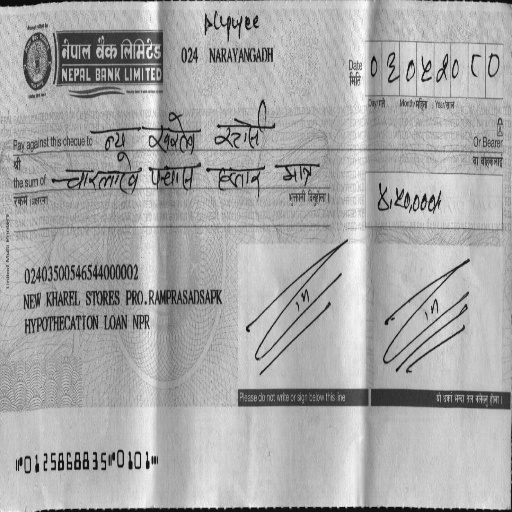 A/C payee
नेपाल बैंक लिमिटेड
NEPAL BANK LIMITED
024 NARAYANGADH
Date
मिति
Day/गते Month/महिना Year/साल
Pay against this cheque to न्यू खरेल स्टोर्स
Or Bearer
श्री
वा वाहकलाई
the sum of चारलाख पचास हजार मात्र
रकम
भुक्तानी दिनुहोला।
४,५०,०००/-
02403500546544000002
NEW KHAREL STORES PRO.RAMPRASADSAPK
HYPOTHECATION LOAN NPR
Please do not write or sign below this line
⑈0125868835⑈0101⑈